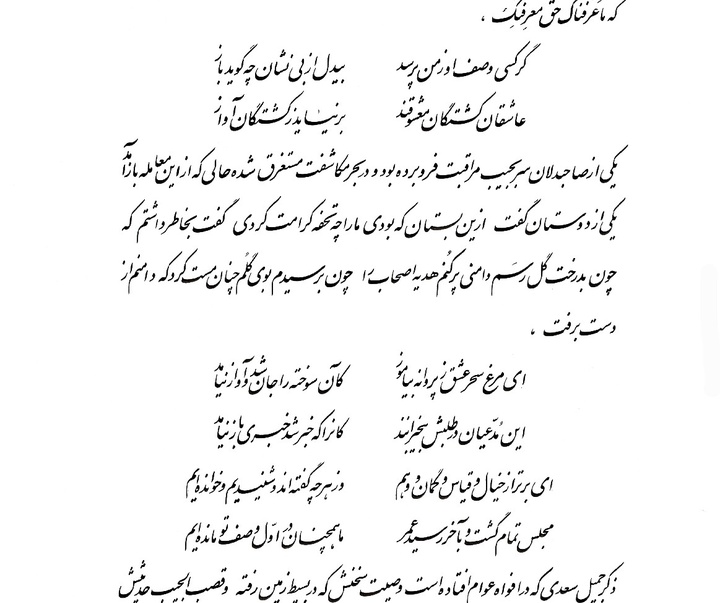 که ما عرفناک حق معرفتک
گر کسی وصف او ز من پرسد بیدل از بی نشان چه گوید باز
عاشقان کشتگان معشوقند بر نیاید ز کشتگان آواز
یکی از صاحبدلان سر بجیب مراقبت فرو برده بود و در بحر مکاشفت مستغرق شده حالی که ازین معامله باز آمد
یکی از دوستان گفت ازین بستان که بودی ما را چه تحفه کرامت کردی گفت بخاطر داشتم که
چون بدرخت گل رسم دامنی پر کنم هدیه اصحاب را چون برسیدم بوی گلم چنان مست کرد که دامنم از
دست برفت
ای مرغ سحر عشق ز پروانه بیاموز کان سوخته را جان شد و آواز نیامد
این مدعیان در طلبش بیخبرانند کانرا که خبر شد خبری باز نیامد
ای برتر از خیال و قیاس و گمان و وهم وز هر چه گفته اند و شنیدیم و خوانده ایم
مجلس تمام گشت و بآخر رسید عمر ما همچنان در اول وصف تو مانده ایم
ذکر جمیل سعدی که در افواه عوام افتاده است وصیت سخنش که در بسیط زمین رفته وقصب الجیب حدیثش